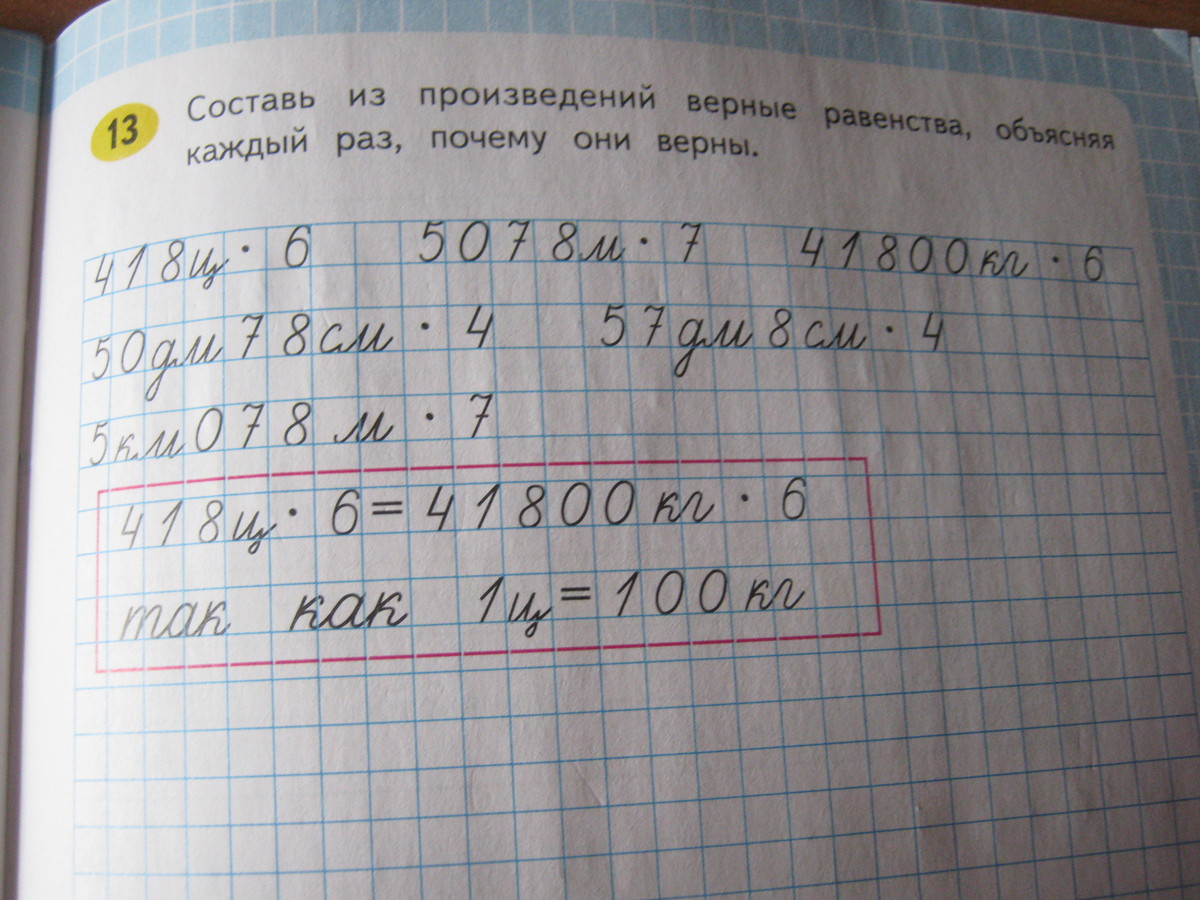 13 Составь из произведений верные равенства, объясняя
каждый раз, почему они верны.
418ц · 6 5078м · 7 41800кг · 6
50дм78см · 4 57дм8см · 4
5км078м · 7
418ц · 6 = 41800кг · 6
так как 1ц = 100кг